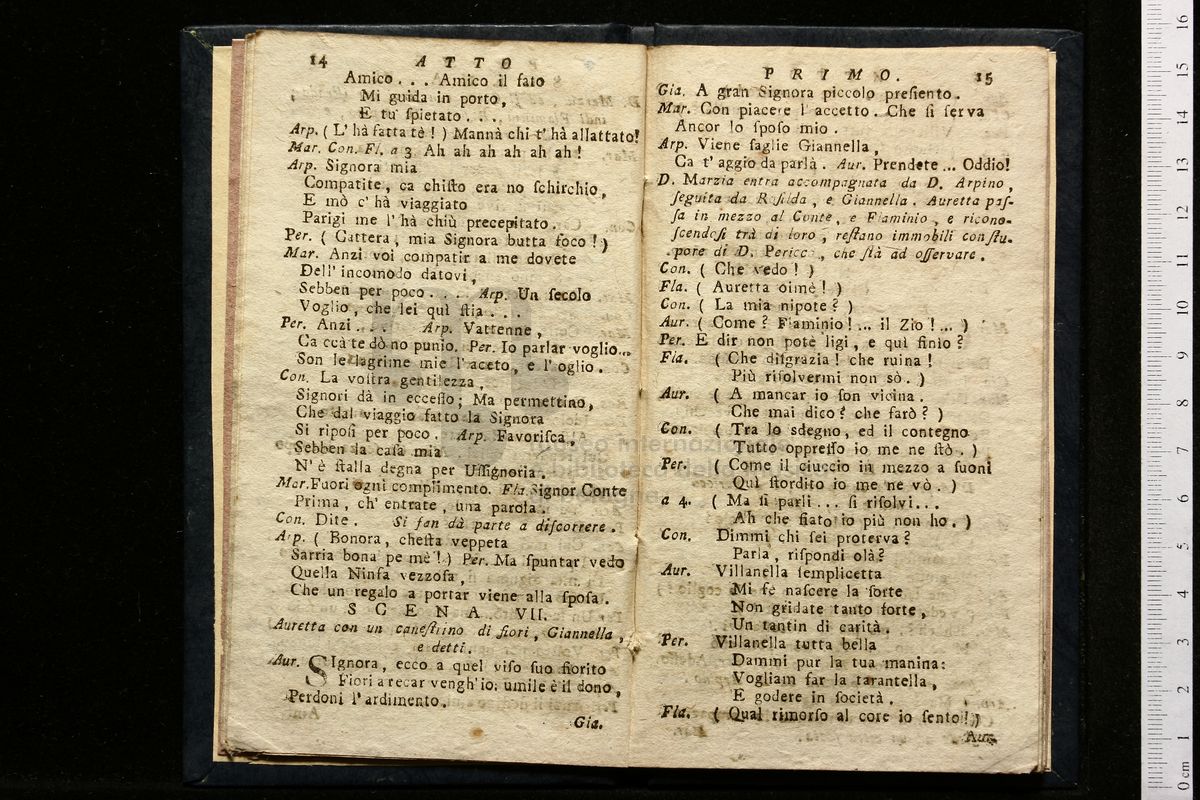 14 ATTO
Amico... Amico il fato
Mi guida in porto,
E tu' ſpietato....
Arp. ( L' hà fatta tè! ) Mannà chi t' hà allattato!
Mar. Con. Fl. a 3 Ah ah ah ah ah ah!
Arp. Signora mia
Compatite, ca chiſto era no ſchirchio,
E mò c' hà viaggiato
Parigi me l' hà chiù precepitato.
Per. ( Cattera, mia Signora butta foco! )
Mar. Anzi voi compatir a me dovete
Dell' incomodo datovi,
Sebben per poco.... Arp. Un ſecolo
Voglio, che lei quì ſtia...
Per. Anzi.... Arp. Vattenne,
Ca ccà te dò no punio. Per. Io parlar voglio...
Son le lagrime mie l' aceto, e l' oglio.
Con. La voſtra gentilezza,
Signori dà in ecceſſo; Ma permettino,
Che dal viaggio fatto la Signora
Si ripoſi per poco. Arp. Favoriſca,
Sebben la caſa mia
N' è ſtalla degna per Uſſignoria.
Mar. Fuori ogni complimento. Fla. Signor Conte
Prima, ch' entrate, una parola.
Con. Dite. Si fan dà parte a diſcorrere.
Arp. ( Bonora, cheſta veppeta
Sarria bona pe mè! ) Per. Ma ſpuntar vedo
Quella Ninfa vezzoſa,
Che un regalo a portar viene alla ſpoſa.
SCENA VII.
Auretta con un caneſtrino di fiori, Giannella,
e detti.
Aur. SIgnora, ecco a quel viſo ſuo fiorito
Fiori a recar vengh' io: umile è il dono,
Perdoni l' ardimento.
Gia.
PRIMO. 15
Gia. A gran Signora piccolo preſiento.
Mar. Con piacere l' accetto. Che ſi ſerva
Ancor lo ſpoſo mio.
Arp. Viene ſaglie Giannella,
Ca t' aggio da parlà. Aur. Prendete... Oddio!
D. Marzia entra accompagnata da D. Arpino,
ſeguita da Roſilda, e Giannella. Auretta paſ-
ſa in mezzo al Conte, e Flaminio, e ricono-
ſcendoſi trà di loro, reſtano immobili con ſtu-
pore di D. Pericco, che ſtà ad oſſervare.
Con. ( Che vedo! )
Fla. ( Auretta oimè! )
Con. ( La mia nipote? )
Aur. ( Come? Flaminio!... il Zio!... )
Per. E dir non potè ligi, e quì finìo?
Fla. ( Che diſgrazia! che ruina!
Più riſolvermi non sò. )
Aur. ( A mancar io ſon vicina.
Che mai dico? che farò? )
Con. ( Tra lo sdegno, ed il contegno
Tutto oppreſſo io me ne ſtò. )
Per. ( Come il ciuccio in mezzo a ſuoni
Quì ſtordito io me ne vò. )
a 4. ( Ma ſi parli... ſi riſolvi...
Ah che fiato io più non ho. )
Con. Dimmi chi ſei proterva?
Parla, riſpondi olà?
Aur. Villanella ſemplicetta
Mi fè naſcere la ſorte
Non gridate tanto forte,
Un tantin di carità.
Per. Villanella tutta bella
Dammi pur la tua manina:
Vogliam far la tarantella,
E godere in ſocietà.
Fla. ( Qual rimorſo al core io ſento! )
Aur.
0 cm 1 2 3 4 5 6 7 8 9 10 11 12 13 14 15 16